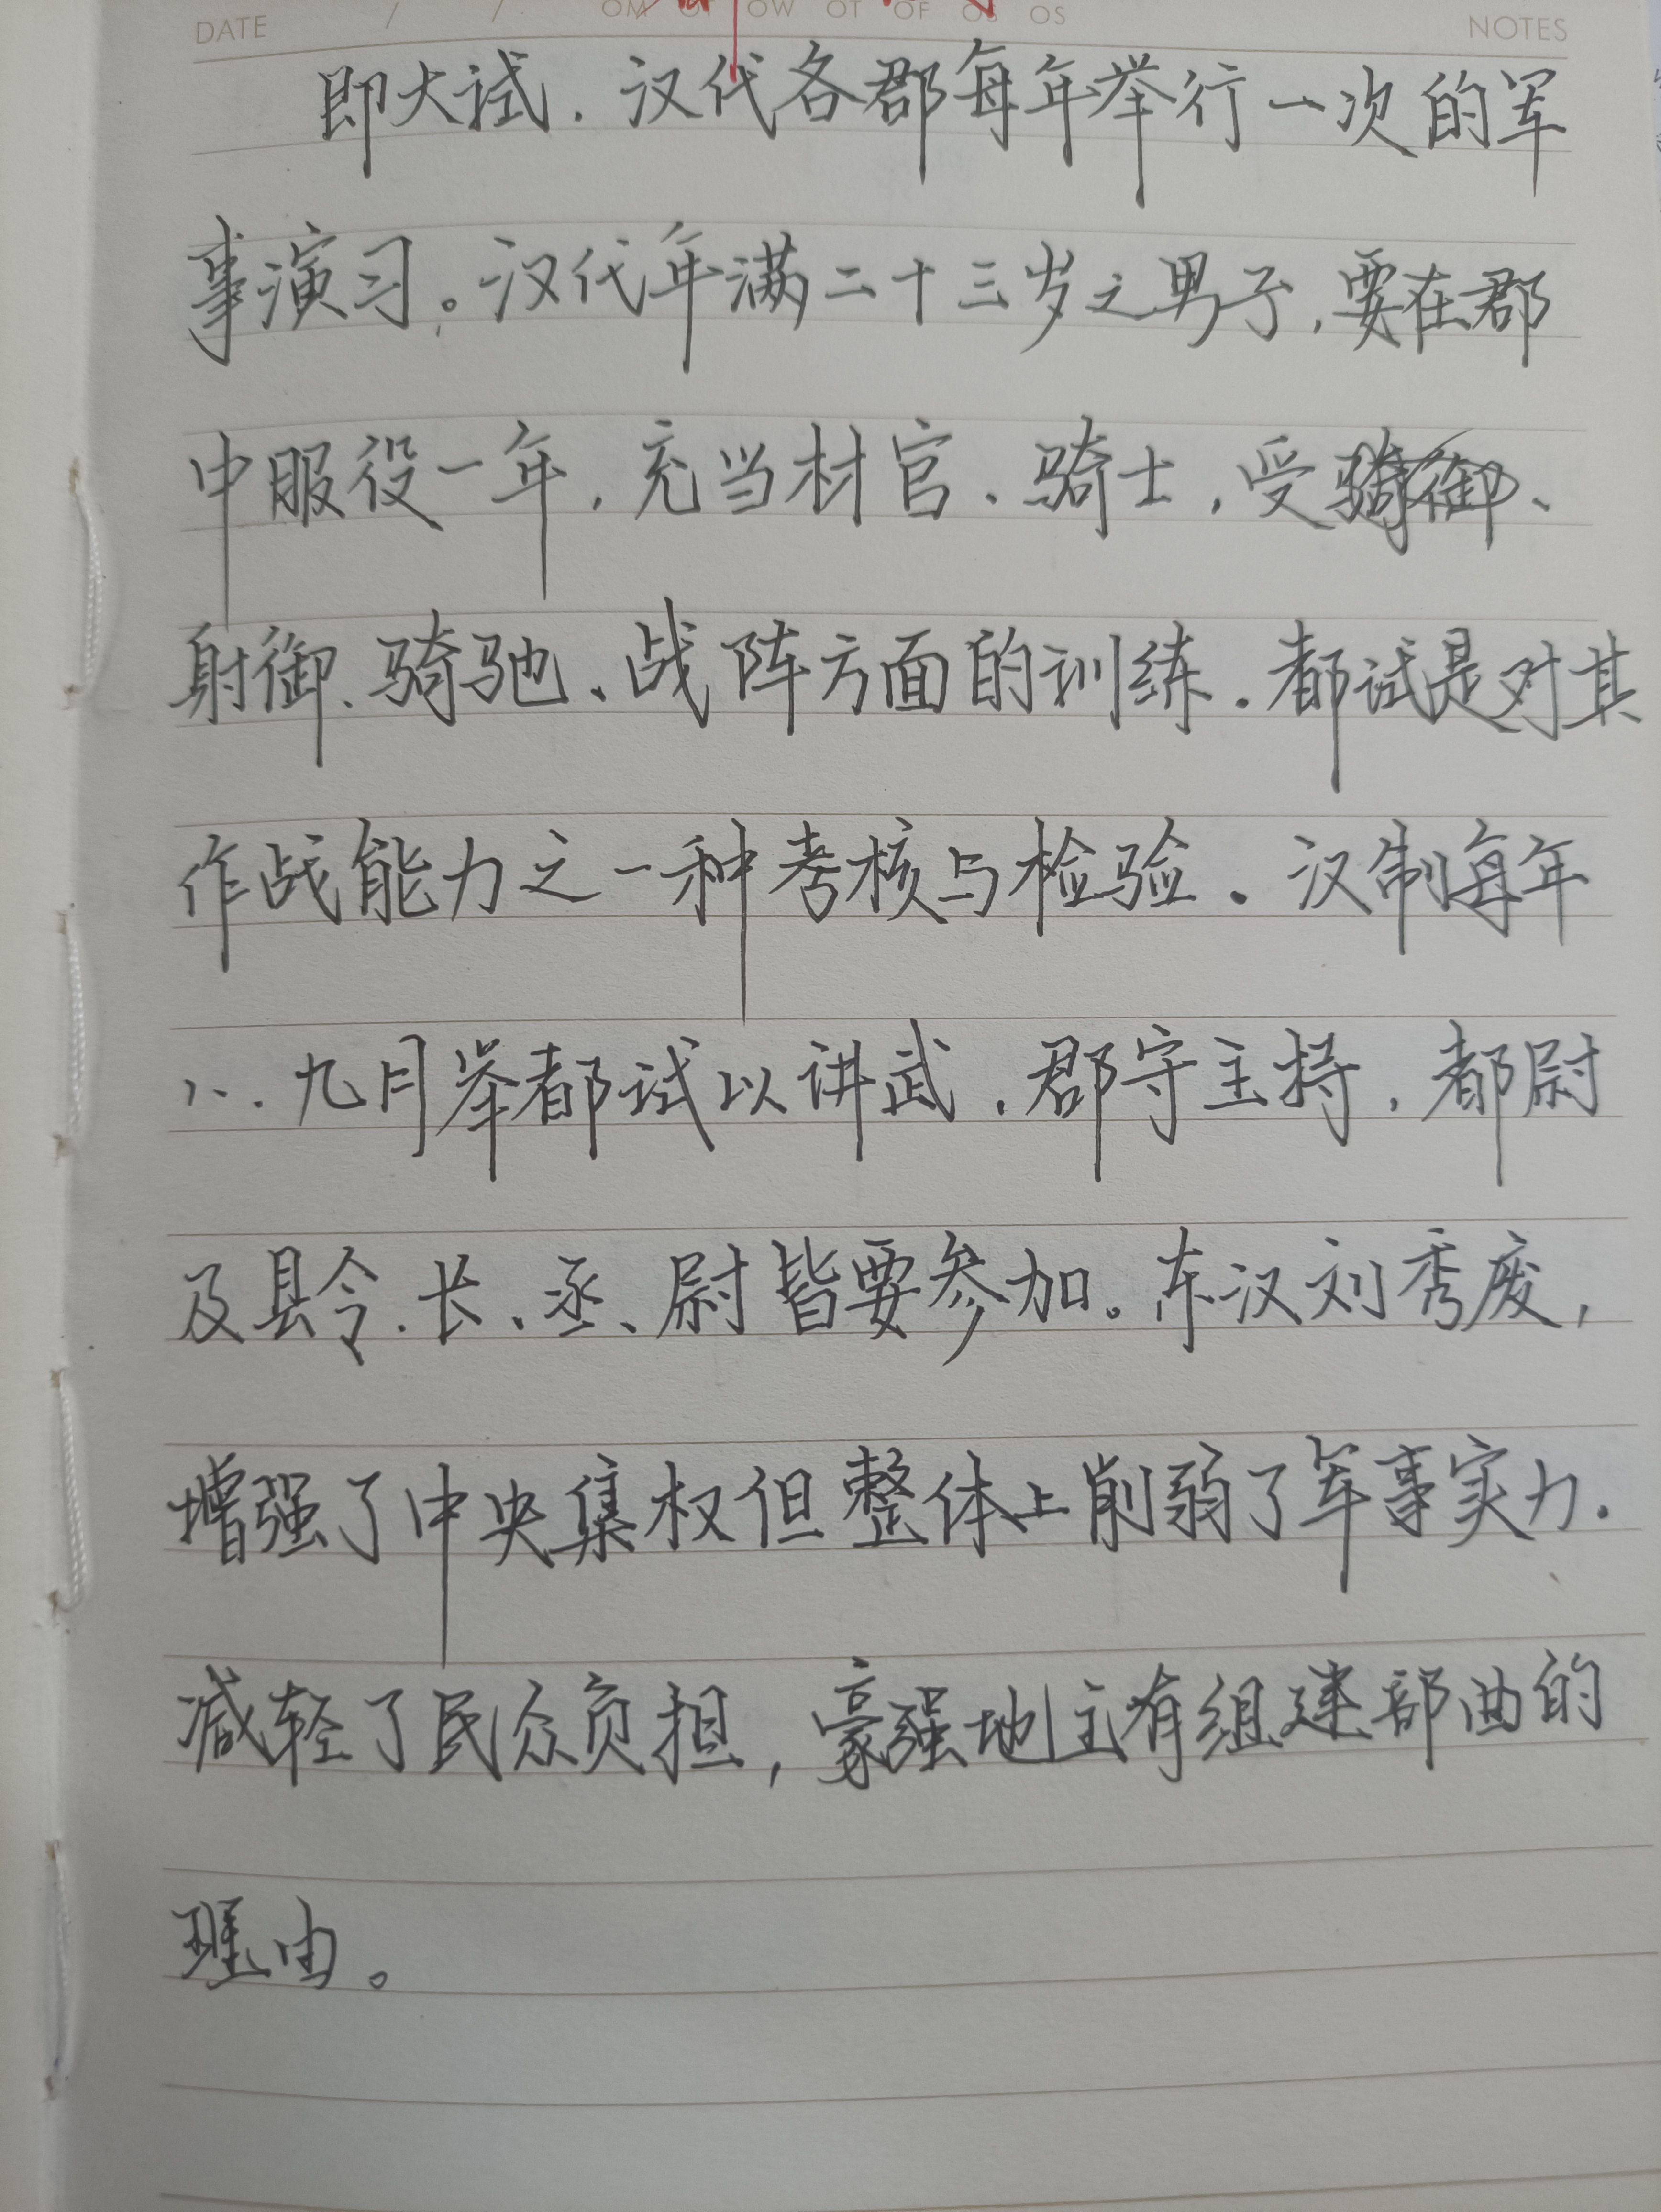 DATE / / NOTES
即大试，汉代各郡每年举行一次的军
事演习。汉代年满二十三岁之男子，要在郡
中服役一年，充当材官、骑士，受骑御、
射御、骑驰、战阵方面的训练。都试是对其
作战能力之一种考核与检验。汉制每年
八、九月举都试以讲武，郡守主持，都尉
及县令、长、丞、尉皆要参加。东汉刘秀废，
增强了中央集权但整体上削弱了军事实力.
减轻了民众负担，豪强地主有组建部曲的
理由。